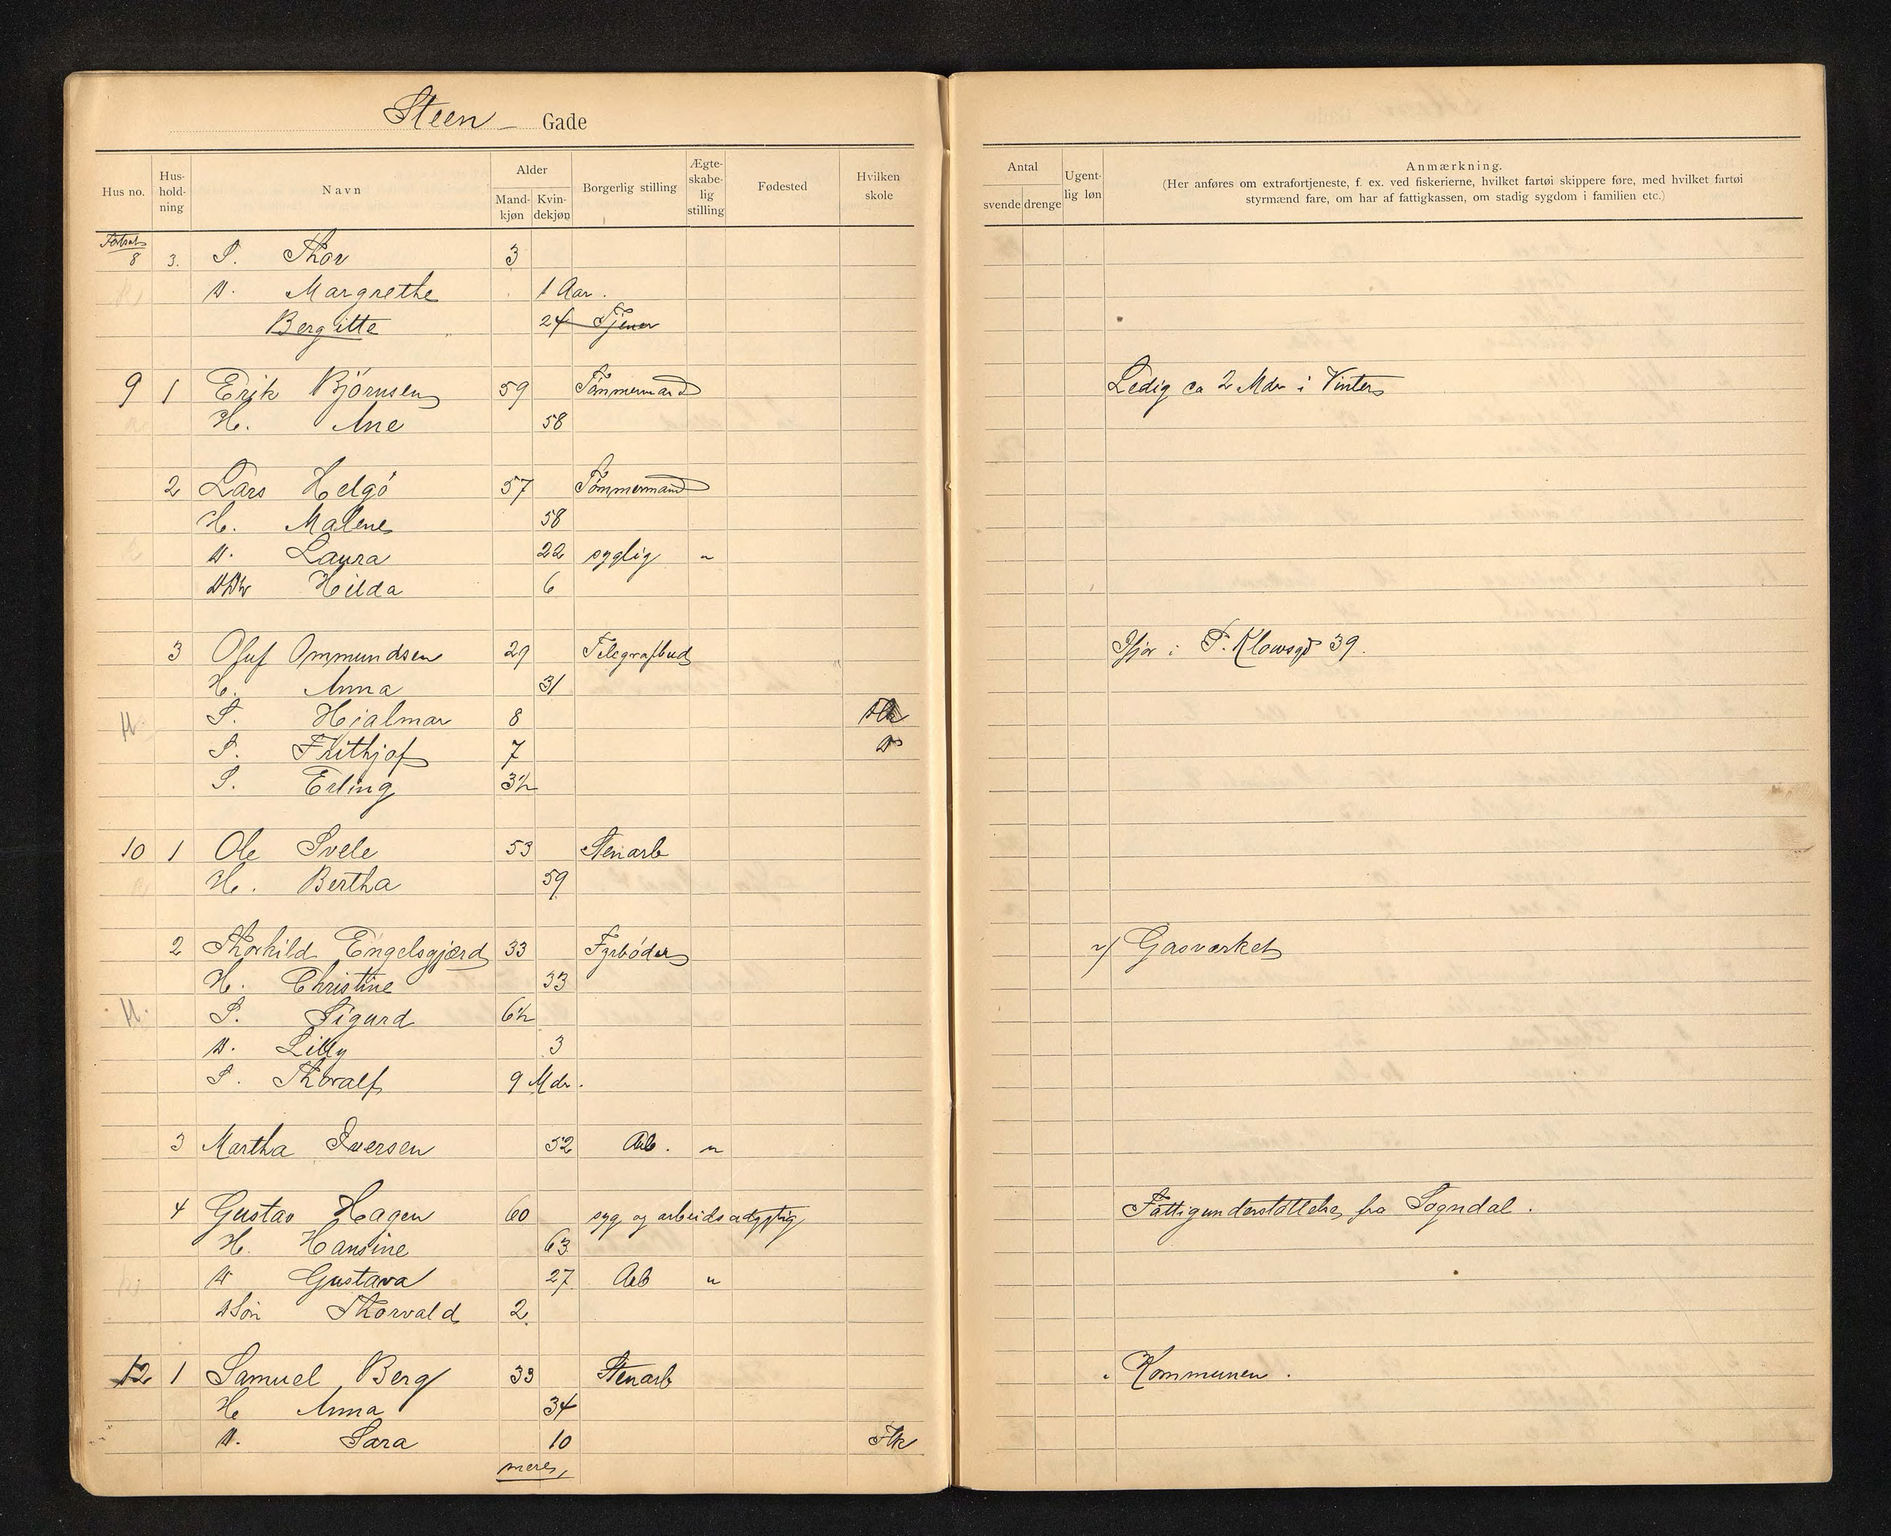 Steen Gade
Hus no. Hus-hold-ning Navn Alder Mand-kjøn Kvin-dekjøn Borgerlig stilling Ægte-skabe-lig stilling Fødested Hvilken skole
Antal svende drenge Ugent-lig løn Anmærkning.
(Her anføres om extrafortjeneste, f. ex. ved fiskerierne, hvilket fartøi skippere føre, med hvilket fartøi
styrmænd fare, om har af fattigkassen, om stadig sygdom i familien etc.)
Fortsat
8 3. S. Thor 3
D. Margrethe 1 Aar.
Bergitte 24 Tjener
9 1 Erik Björnsen 59 Tömmermand Ledig ca 2 Mdr i Vinter
H. Ane 58
2 Lars Helgö 57 Tömmermand
H. Malene 58
D. Laura 22 syglig "
DDtr Hilda 6
3 Oluf Ommundsen 29 Telegrafbud Ifjor i P. Klowsgd 39.
H. Anna 31
S. Hjalmar 8
S. Frithjof 7
S. Erling 3½
10 1 Ole Svele 53 Stenarb
H. Bertha 59
2 Thorkild Engelsgjærd 33 Fyrböder v/ Gasværket
H. Christine 33
S. Sigurd 6½
D. Lilly 3
S. Thoralf 9 Mdr.
3 Martha Iversen 52 Arb. "
4 Gustav Hagen 60 syg og arbeidsudygtig Fattigunderstöttelse fra Sogndal.
H. Hansine 63
D Gustava 27 Arb "
DSön Thorvald 2.
12 1 Samuel Berg 33 Stenarb Kommunen.
H. Anna 34
D. Sara 10 Flk
mere,